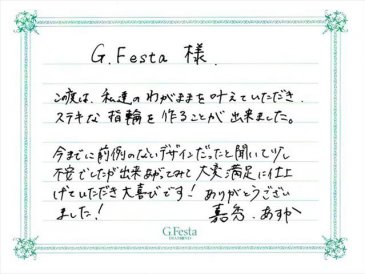 G.Festa 様.
この度は、私達のわがままを叶えていただき、
ステキな指輪を作ることが出来ました。
今までに前例のないデザインだったと聞いて少し
不安でしたが出来あがってみて大変満足に仕上
げていただき大喜びです！ありがとうござい
ました！
嘉秀、あすか
G.Festa
DIAMOND